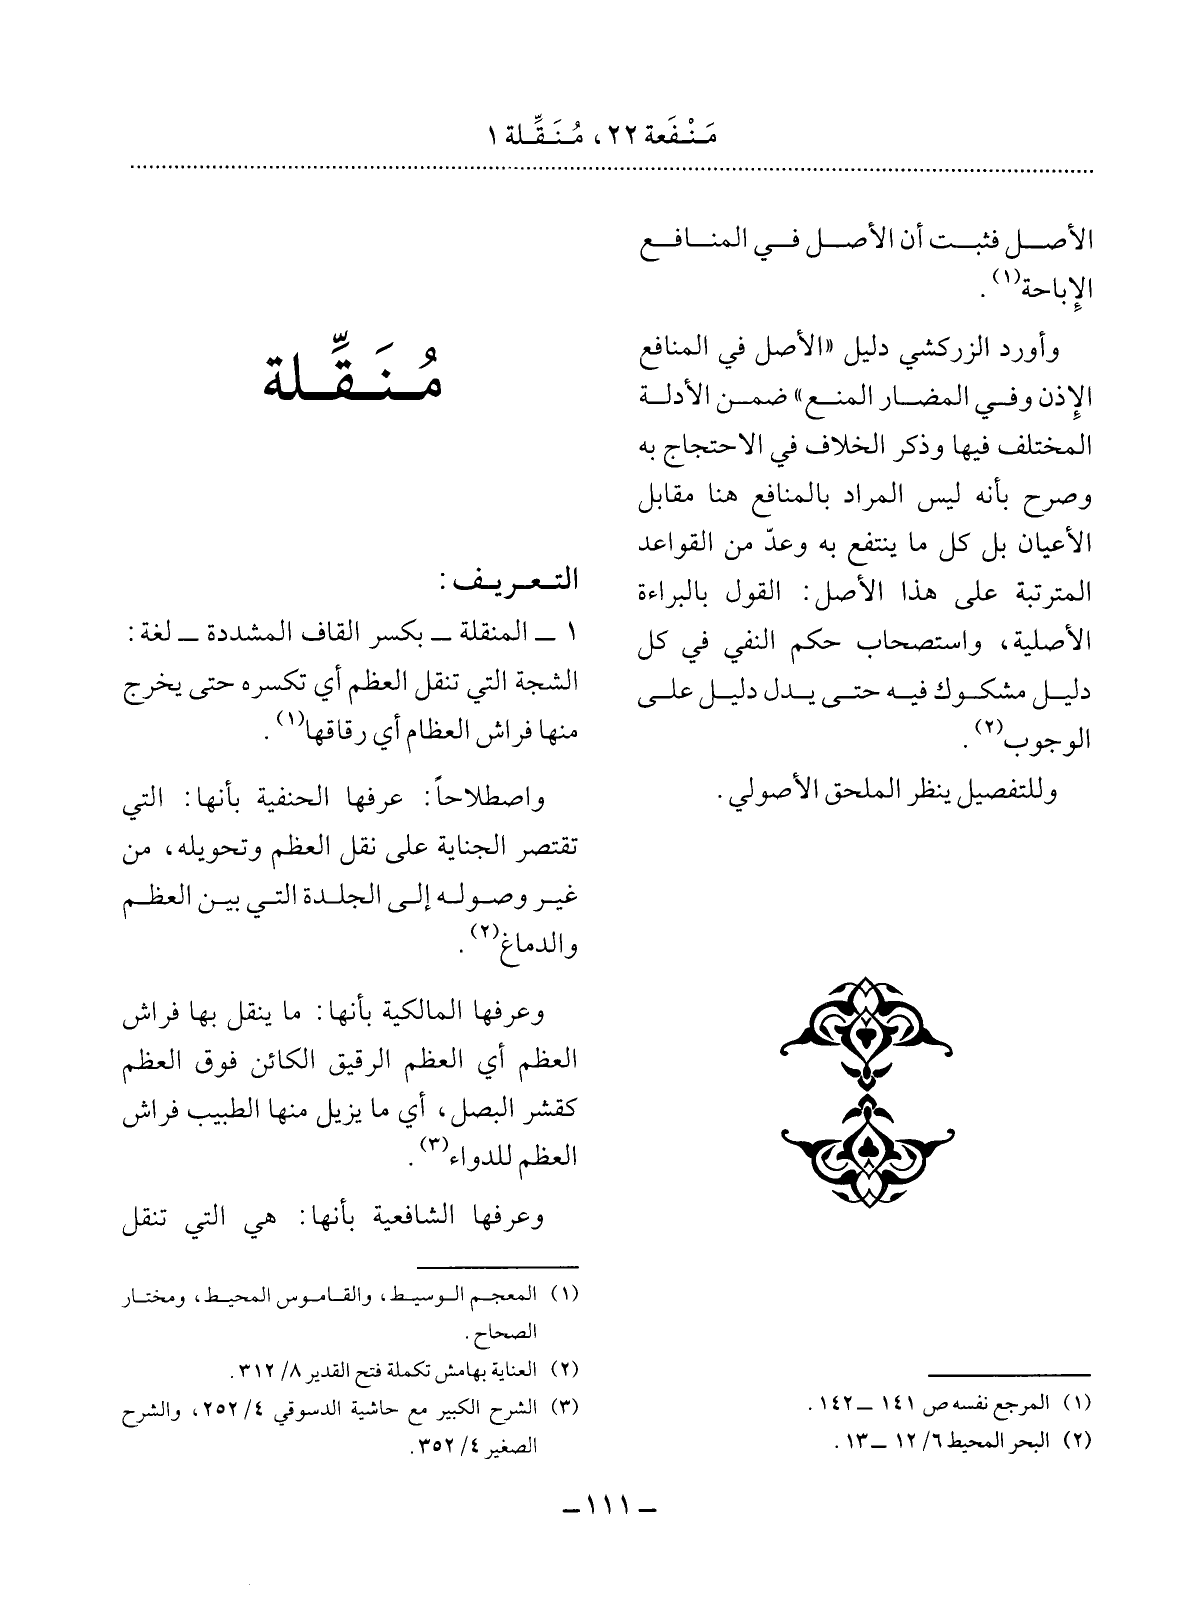 مَـنْـفَعة ٢٢، مُـنَـقِّـلة ١
الأصــل فثبــت أن الأصــل فــي المنــافــع
الإباحة(١).
وأورد الزركشي دليل «الأصل في المنافع
الإذن وفــي المضــار المنــع» ضمــن الأدلــة
المختلف فيها وذكر الخلاف في الاحتجاج به
وصرح بأنه ليس المراد بالمنافع هنا مقابل
الأعيان بل كل ما ينتفع به وعدّ من القواعد
المترتبة على هذا الأصل: القول بالبراءة
الأصلية، واستصحاب حكم النفي في كل
دليـل مشكـوك فيـه حتـى يـدل دليـل علـى
الوجوب(٢).
وللتفصيل ينظر الملحق الأصولي.
(١) المرجع نفسه ص ١٤١ ــ ١٤٢.
(٢) البحر المحيط ٦/ ١٢ ــ ١٣.
مُـنَـقِّـلة
التـعـريـف:
١ ــ المنقلة ــ بكسر القاف المشددة ــ لغة:
الشجة التي تنقل العظم أي تكسره حتى يخرج
منها فراش العظام أي رقاقها(١).
واصطلاحاً: عرفها الحنفية بأنها: التي
تقتصر الجناية على نقل العظم وتحويله، من
غيـر وصـولـه إلـى الجلـدة التـي بيـن العظـم
والدماغ(٢).
وعرفها المالكية بأنها: ما ينقل بها فراش
العظم أي العظم الرقيق الكائن فوق العظم
كقشر البصل، أي ما يزيل منها الطبيب فراش
العظم للدواء(٣).
وعرفها الشافعية بأنها: هي التي تنقل
(١) المعجـم الـوسيـط، والقـامـوس المحيـط، ومختـار
الصحاح.
(٢) العناية بهامش تكملة فتح القدير ٨/ ٣١٢.
(٣) الشرح الكبير مع حاشية الدسوقي ٤/ ٢٥٢، والشرح
الصغير ٤/ ٣٥٢.
ــ ١١١ ــ